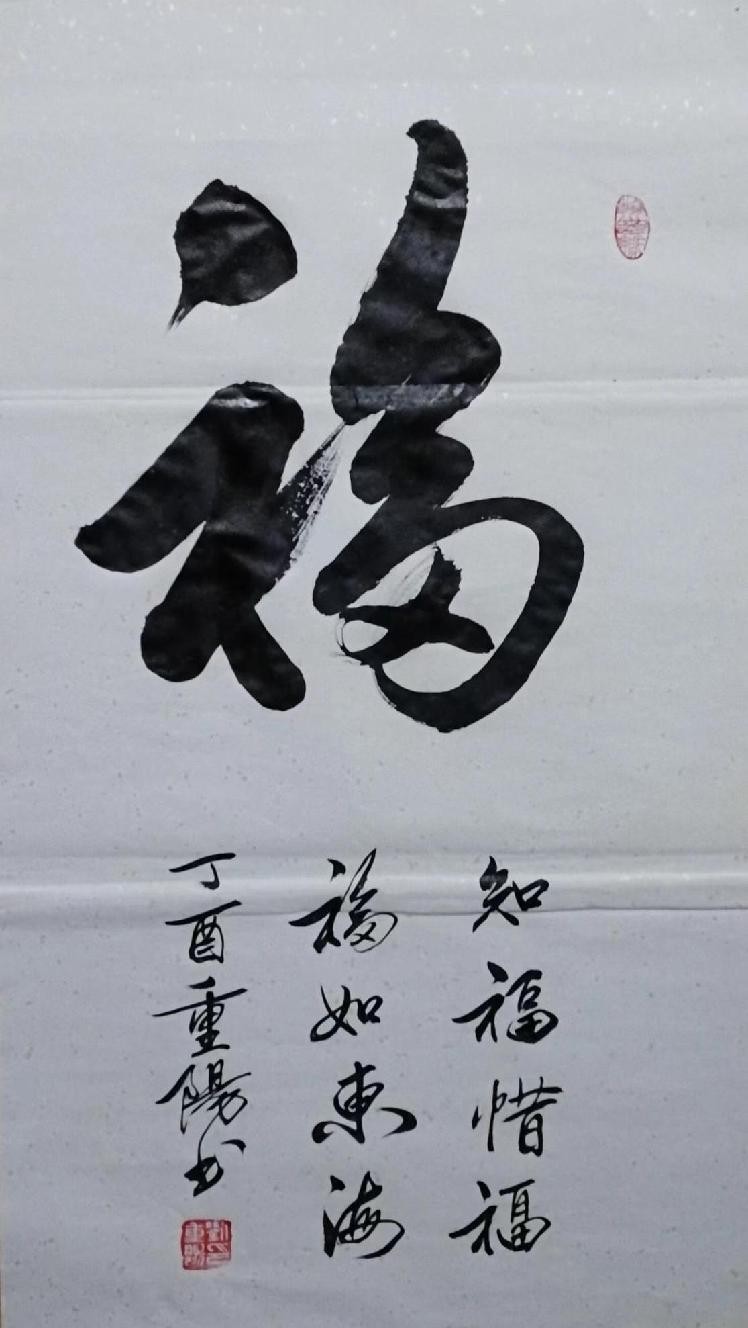 福
知福惜福
福如東海
丁酉重陽书